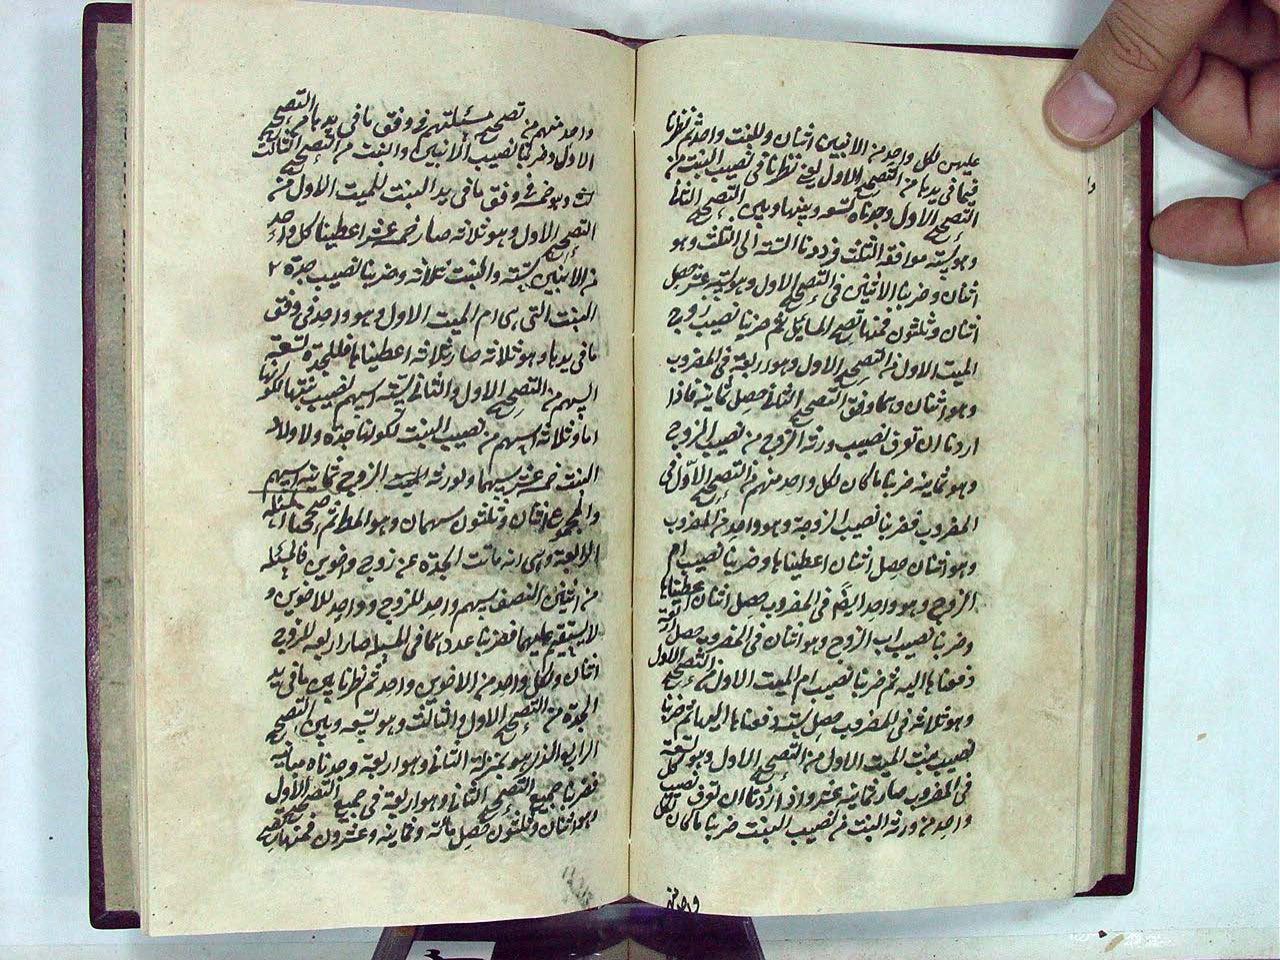 عليهن لكل واحد من الابنين اثنان وللبنت واحد ثم نظرنا
فيما في يدها من التصحيح الاول يعني نظرنا في نصيب البنت من
التصحيح الاول وجدناه تسعة وبينها وبين التصحيح الثاني
وهو ستة موافقة الثلث فرددنا الستة الى الثلث وهو
اثنان وضربنا الاثنين في التصحيح الاول وهو ستة عشر حصل
اثنان وثلثون فمنها تصح المسائل ثم ضربنا نصيب زوج
الميت الاول من التصحيح الاول وهو اربعة في المضروب
وهو اثنان وهما وفق التصحيح الثاني حصل ثمانية فاذا
اردنا ان نعرف نصيب ورثة الزوج من نصيب الزوج
وهو ثمانية ضربنا ما كان لكل واحد منهم من التصحيح الاول في
المضروب فضربنا نصيب الزوجة وهو واحد من المضروب
وهو اثنان حصل اثنان اعطيناها وضربنا نصيب ام
الزوج وهو واحد ايضا في المضروب حصل اثنان اعطيناها
وضربنا نصيب اب الزوج وهو اثنان في المضروب حصل اربعة
دفعناها اليه ثم ضربنا نصيب ام الميت الاول من التصحيح الاول
وهو ثلاثة في المضروب حصل ستة دفعناها اليها ثم ضربنا
نصيب بنت الميت الاول من التصحيح الاول وهو تسعة
في المضروب صار ثمانية عشر واذا اردنا ان نعرف نصيب كل
واحد من ورثة البنت من نصيب البنت ضربنا ما كان لكل
واحد منهم من تصحيح مسئلتهم في وفق ما في يدها من التصحيح
الاول وضربنا نصيب الابنين والبنت من التصحيح الثالث
وهو خمسة في وفق ما في يد البنت للميت الاول من
التصحيح الاول وهو ثلاثة صار خمسة عشر اعطينا كل واحد
من الابنين ستة والبنت ثلاثة وضربنا نصيب جدة
البنت التي هي ام الميت الاول وهو واحد في وفق
ما في يدها وهو ثلاثة صار ثلاثة اعطيناها فللجدة تسعة
اسهم من التصحيح الاول والثاني ستة اسهم نصيب بنتها لكونها
اما وثلاثة اسهم من نصيب البنت لكونها جدة ولاولاد
البنت خمسة عشر سهما ولورثة الزوج ثمانية اسهم
والمجموع اثنان وثلثون سهمان وهو المط ثم
الرابعة وهي انه ماتت الجدة عن زوج واخوين فالمسئلة
من اثنين النصف سهم واحد للزوج وواحد للاخوين و
لا يستقيم عليهما فضربنا عددهما في المسئلة صار اربعة للزوج
اثنان ولكل واحد من الاخوين واحد ثم نظرنا بين ما في يد
الجدة من التصحيح الاول والثالث وهو تسعة وبين التصحيح
الرابع الذي هو بمنزلة الثاني وهو اربعة وجدناه مباينة
فضربنا جميع التصحيح الثاني وهو اربعة في جميع التصحيح الاول
وهو اثنان وثلثون حصل مائة وثمانية وعشرون فمنها